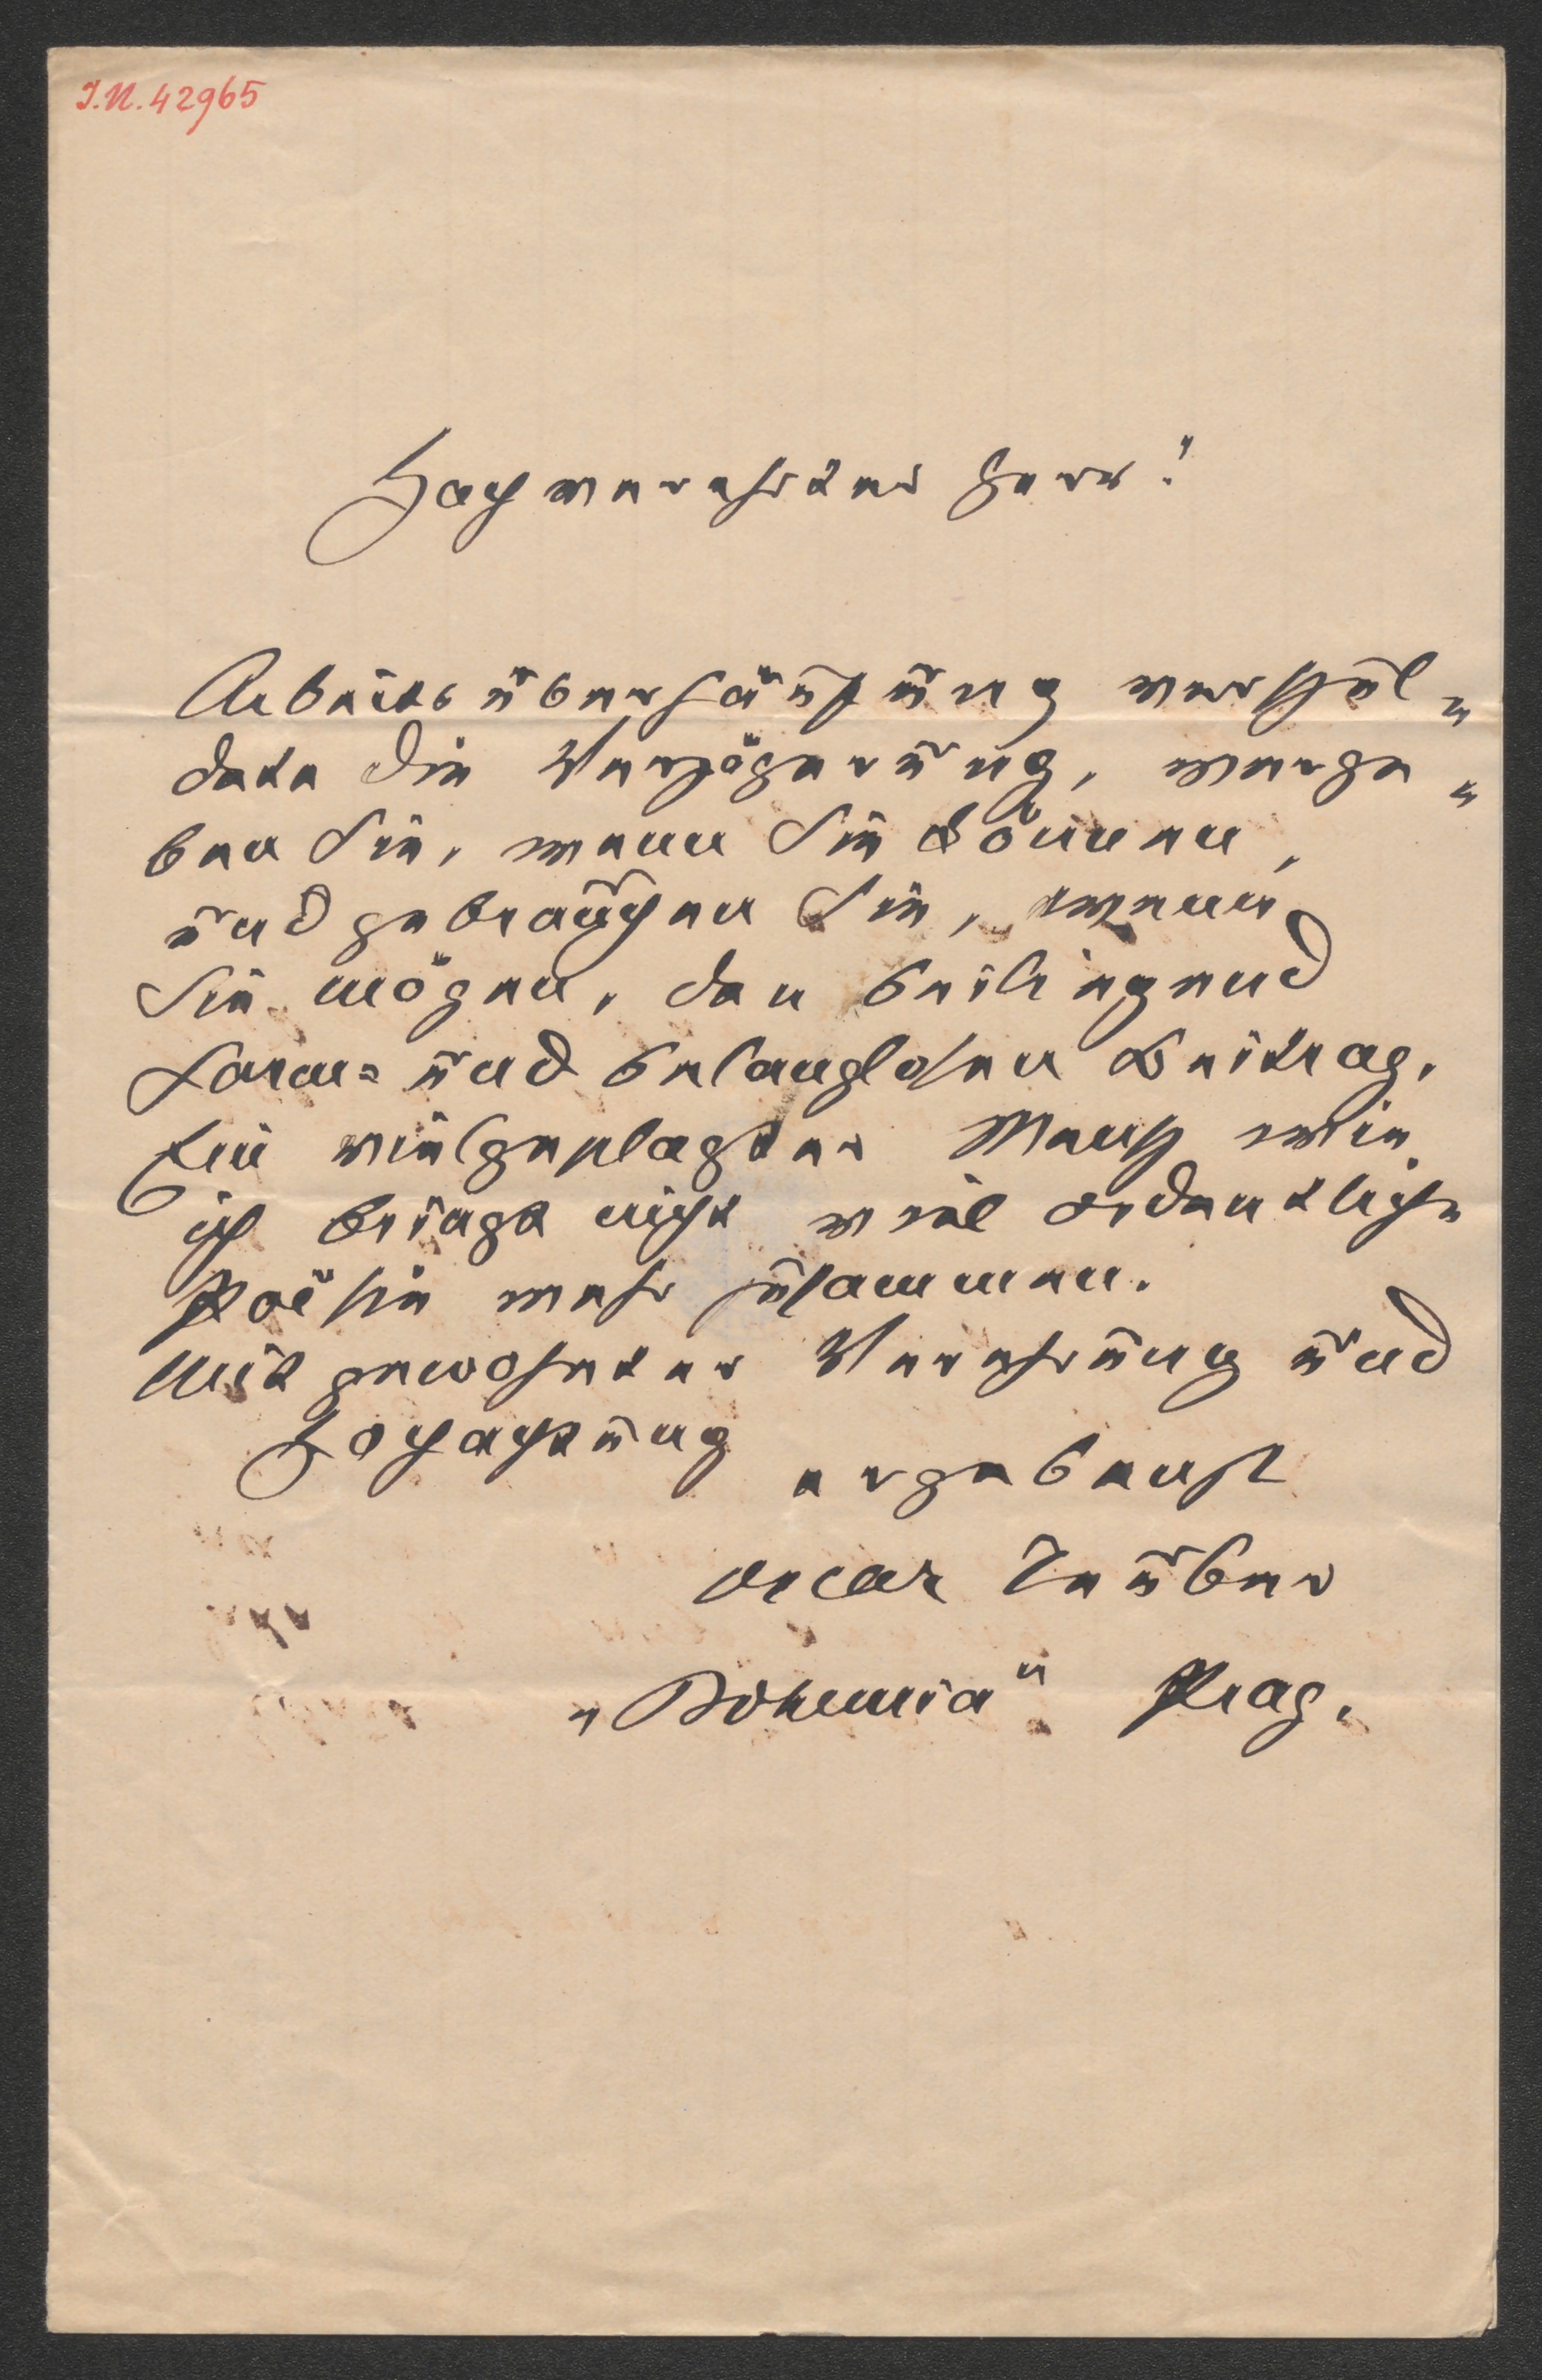 I.N. 42965
Hochverehrter Herr!
Arbeitsüberhäufung verschul-
dete die Verzögerung, verge-
ben Sie, wenn Sie können,
und gebrauchen Sie, wenn
Sie mögen, den beiliegend
form- und belanglosen Beitrag.
Ein vielgeplagter Mensch wie
ich bringt nicht viel ordentliche
Poësie mehr zusammen.
Mit gewohnter Verehrung und
Hochachtung
ergebenst
Oscar Teuber
„Bohemia" Prag.